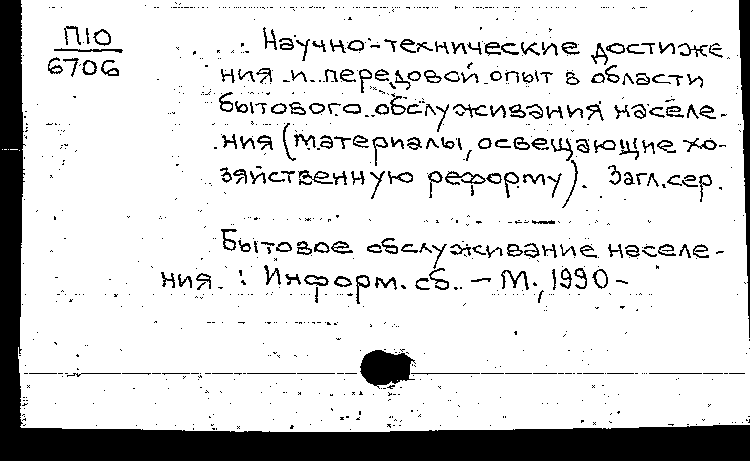 П10
6706
Научно-технические достиже
ния и передовой опыт в области
бытового обслуживания населе-
ния (материалы, освещающие хо-
зяйственную реформу). Загл. сер.
Бытовое обслуживание населе-
ния : Информ. сб. - М., 1990 -